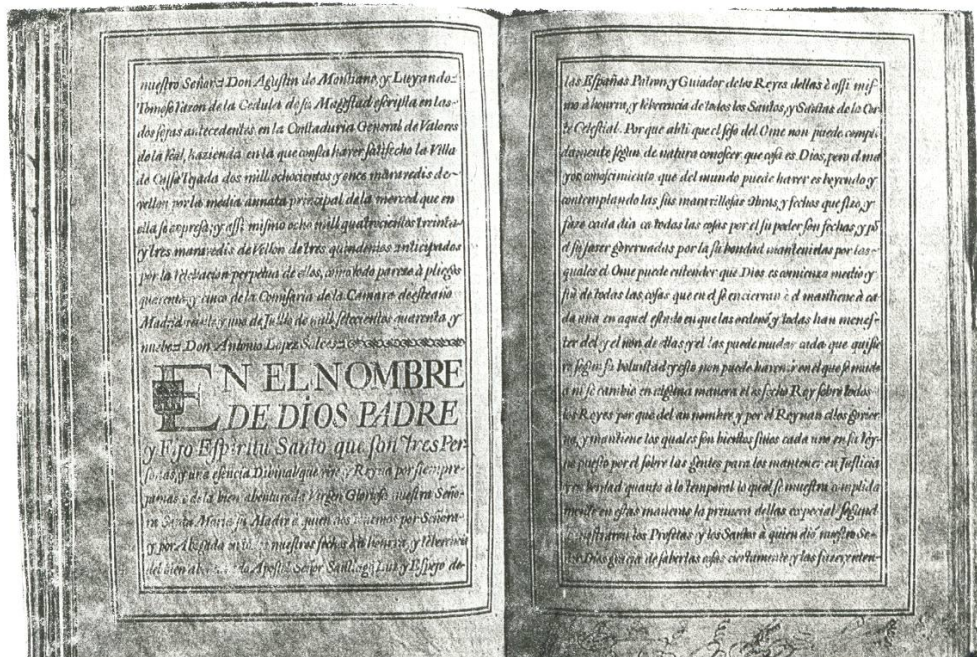 nuestro Señor= Don Agustin de Montiano, y Luyando=
Tomose razon de la Cedula de su Magestad escripta en las
dos fojas antecedentes en la Contaduria General de Valores
de la Real hazienda en la que consta haver satisfecho la Villa
de dos mill ochocientos y once maravedis de
vellon por la media annata principal de la merced que en
ella se expresa; y assi mismo ocho mill quatrocientos treinta
y tres maravedis de Vellon de tres quindenios anticipados
por la relebacion perpetua de ellos, como todo parece à pliegos
quarenta, y cinco de la Comisaria de la Camara de este año
Madrid veinte y uno de Jullio de mill setecientos quarenta, y
nuebe= Don Antonio Lopez Salces=
EN EL NOMBRE
DE DÍOS PADRE
y Fijo Espiritu Santo que son tres Per-
sonas, y una esencia Divinal que vive, y Reyna por siempre
jamas è de la bien abenturada Virgen Gloriosa nuestra Seño-
ra Santa Maria su Madre à quien nos tenemos por Señora
y por Abogada en todos nuestros fechos è à honrra, y reberencia
del bien Apostol Señor Santiago Luz y Espejo de
las Españas Patron, y Guiador de los Reyes dellas è assi mis-
mo à honrra, y reverencia de todos los Santos, y Santas de la Cor-
te Celestial. Porque abti que el seso del Ome non puede compli-
damente segun de natura conoscer que cosa es Dios, pero el ma-
yor conoscimiento que del mundo puede haver es leyendo y
contemplando las sus maravillosas Obras, y fechos que fizo, y
faze cada dia ca todas las cosas por el su poder son fechas, y pō
el su saver governadas por la su bondad mantenidas por las
quales el Ome puede entender que Dios es comienzo medio y
fin de todas las cosas que en el se encierran è el mantiene à ca-
da una en aquel estado en que las ordenó, y todas han menes-
ter del y el non de ellas y el las puede mudar cada que quisie-
re segun su boluntad y esto non puede haver, ir en el que se mude
ni se cambie en alguna manera el es fecho Rey sobre todos
los Reyes por que del an nombre, y por el Reynan ellos govier-
na, y mantiene los quales son cada uno en su Rey-
no puesto por el sobre las gentes para los mantener en Justicia
y en berdad quanto à lo temporal lo qual se muestra complida-
mente en estas maneras la primera dellas es pecial segund
mostraron los Profetas, y los Santos à quien dió nuestro Se-
ñor Dios gracia de saber las cosas ciertamente y las fazer enten-